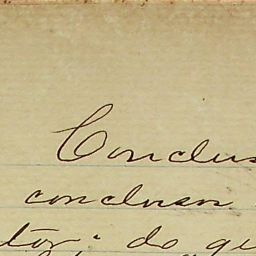 Conclus
conclusos
tor; do qu